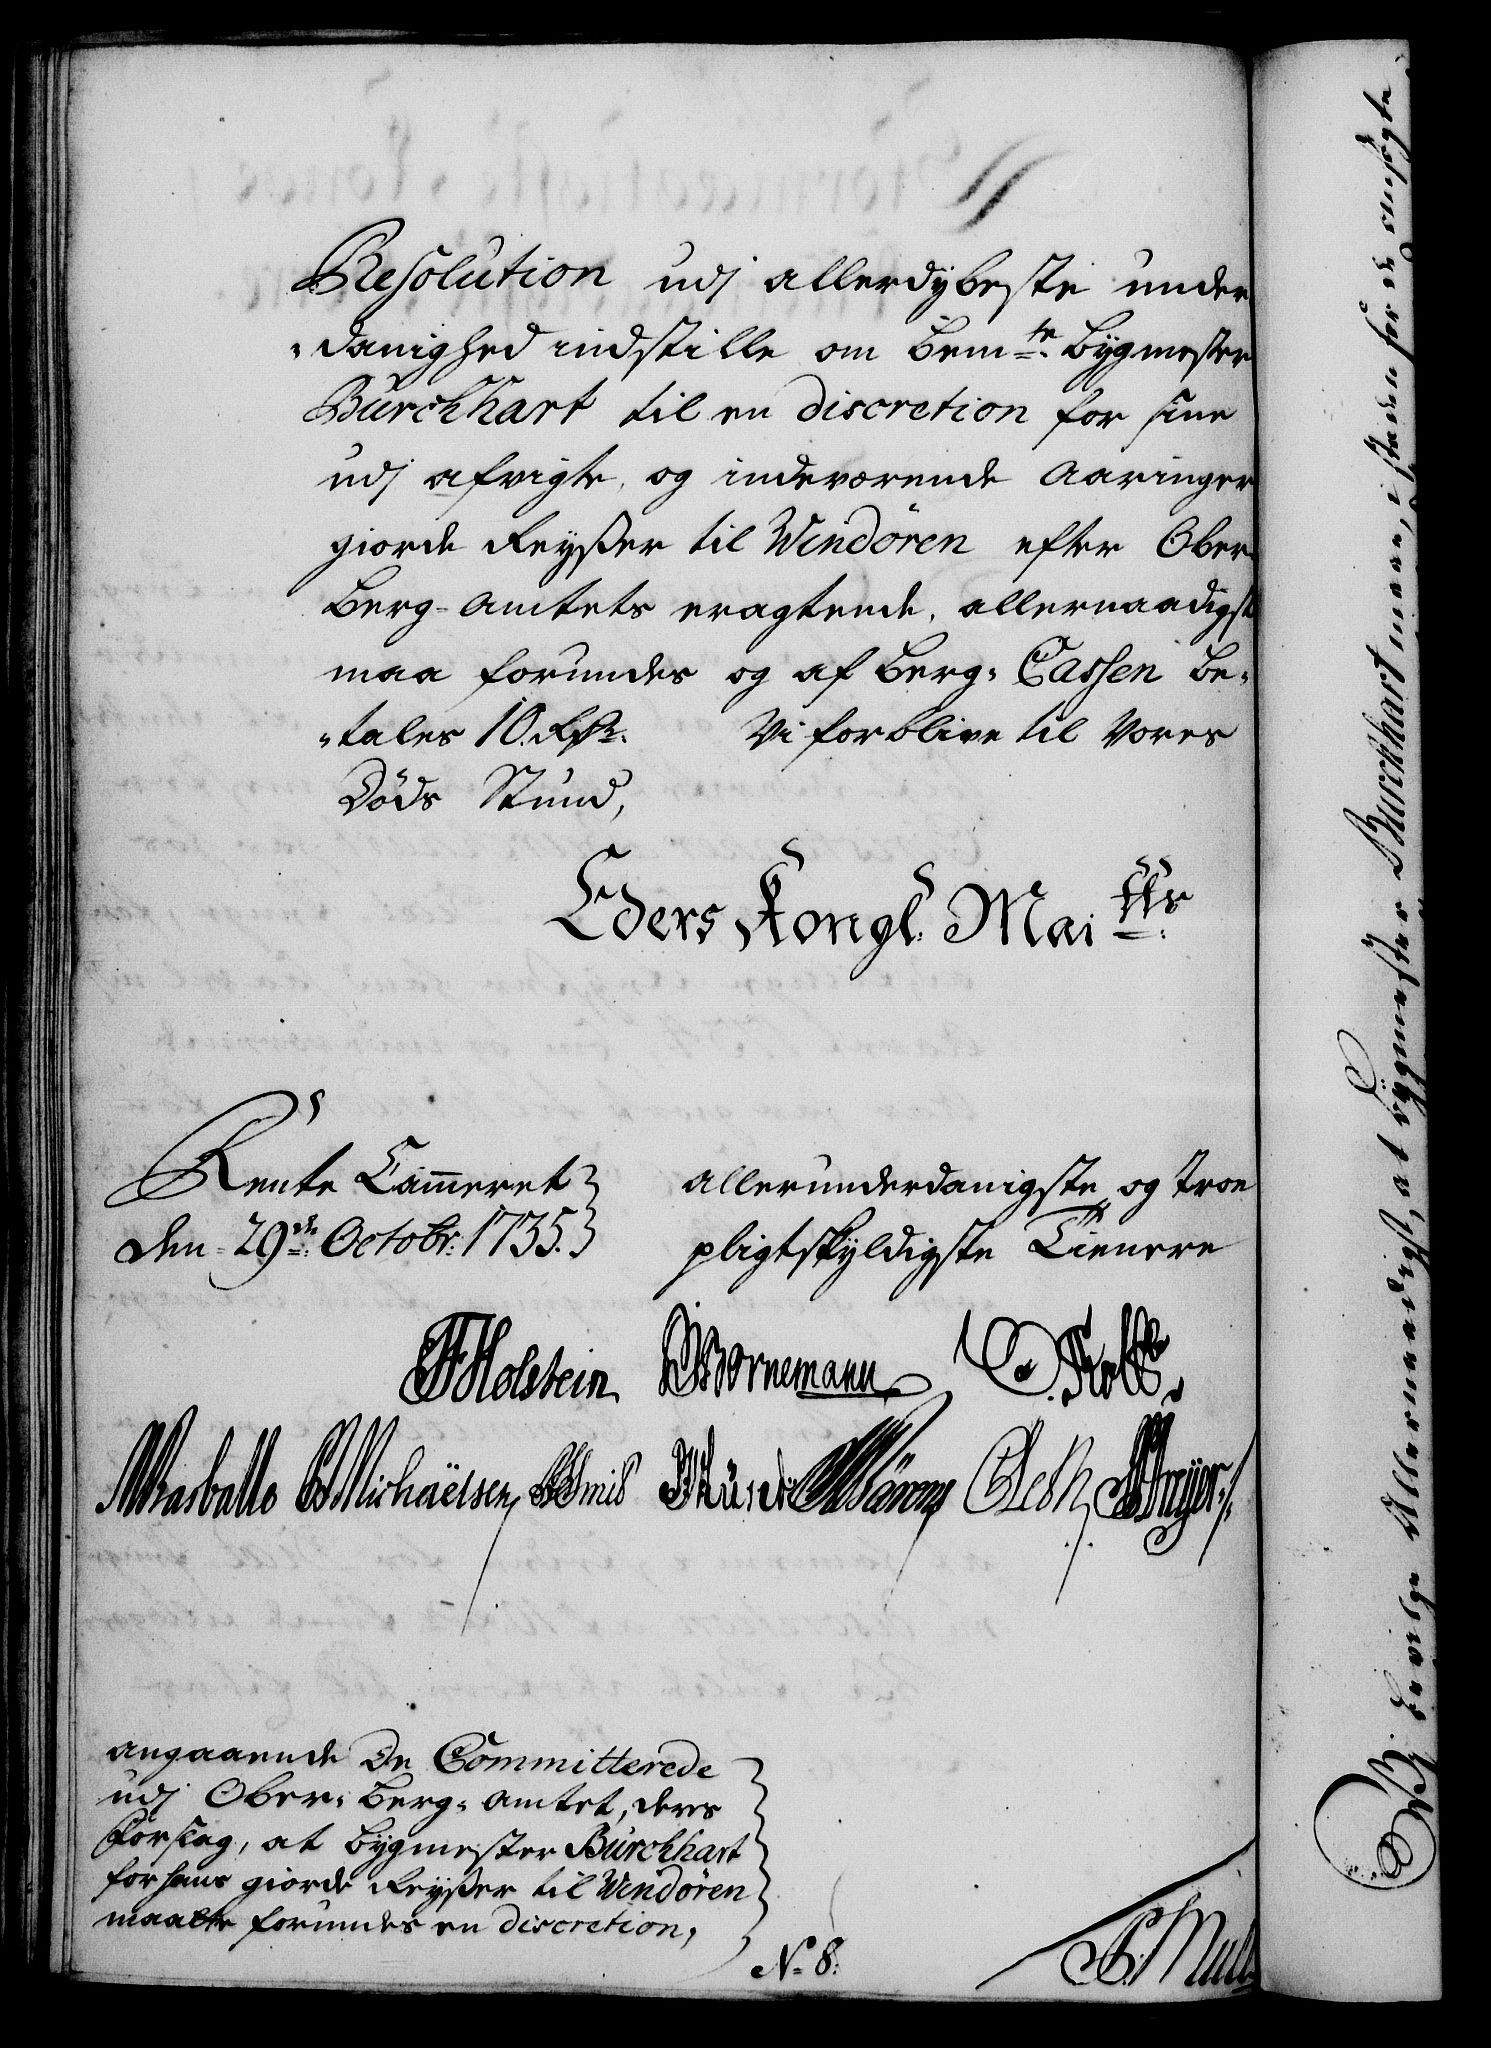 Resolution udj allerdybeste under
-danighed indstille om bem.te Bÿgmester
Burchhart til en discretion for sine
udj afvigte, og indeværende Aaringer
giorde Reyßer til Windören efter Ober-
Berg-Amtets eragtende, allernaadigst
maa forundes og af Berg-Cassen be-
-tales 10. Rdr. Vi forblive til Vores
Döds Stund,
Eders Kongl. Mai.tts
Rente Cammeret
den 29de Octobr: 1735.
allerunderdanigste og troe
pligtskyldigste Tienere
Holstein Bornemann Kolb
Wasballe Michaëlsen Smib
angaaende De Committerede
udj Ober-Berg-Amtet, deres
Forslag, at Bygmester Burchhart
for hans giorde Reyßer til Windören
maatte forundes en discretion,
No 8.
Bevilge Allernaadigst, at Bÿgmester Burckhart maae, i steden for de ansøgte